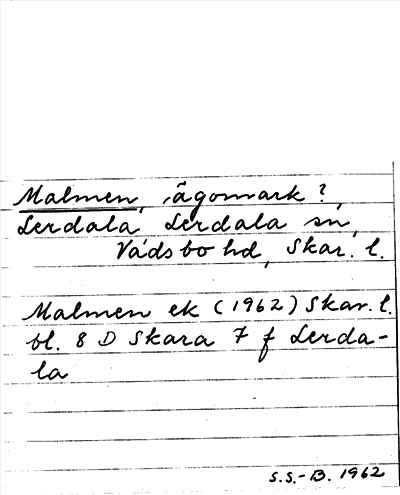 Malmen, ägomark?,
Lerdala, Lerdala sn,
Vadsbo hd, Skar. l.
Malmen ek (1962) Skar. l.
bl. 8 D Skara 7 f Lerda-
la
S.S.-B. 1962